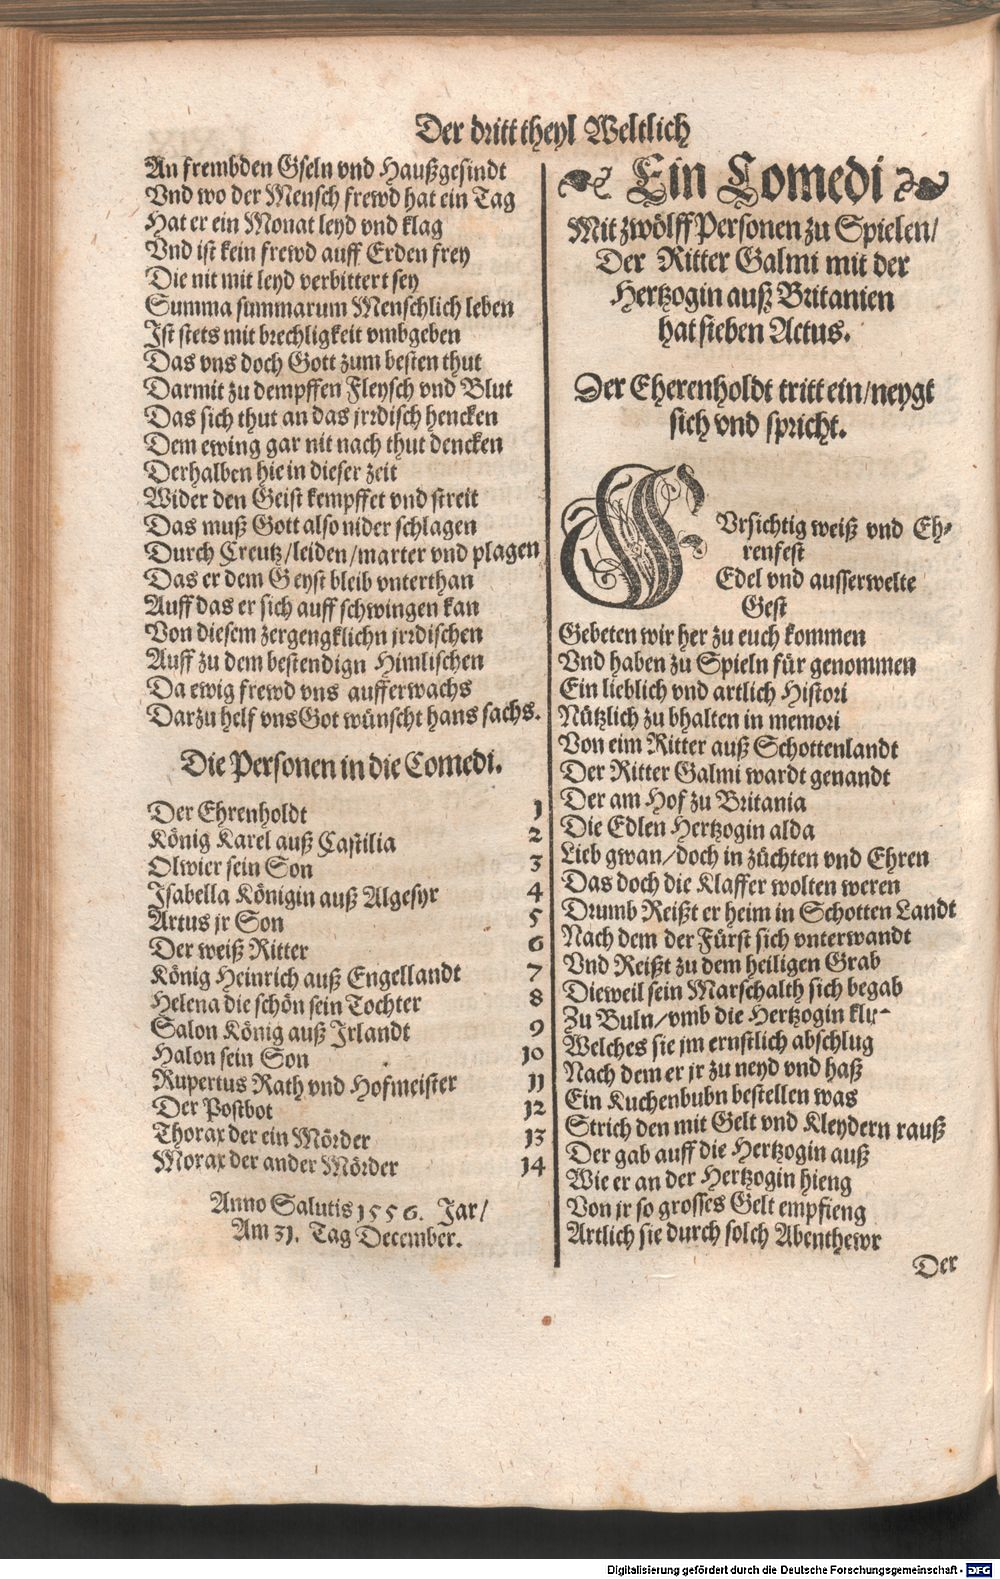 Der dritt theyl Weltlich
An frembden Gseln vnd Haußgesindt
Vnd wo der Mensch frewd hat ein Tag
Hat er ein Monat leyd vnd klag
Vnd ist kein frewd auff Erden frey
Die nit mit leyd verbittert sey
Summa summarum Menschlich leben
Ist stets mit brechligkeit vmbgeben
Das vns doch Gott zum besten thut
Darmit zu dempffen Fleysch vnd Blut
Das sich thut an das jrrdisch hencken
Dem ewing gar nit nach thut dencken
Derhalben hie in dieser zeit
Wider den Geist kempffet vnd streit
Das muß Gott also nider schlagen
Durch Creutz/leiden/marter vnd plagen
Das er dem Geyst bleib vnterthan
Auff das er sich auff schwingen kan
Von diesem zergengklichn jrrdischen
Auff zu dem bestendign Himlischen
Da ewig frewd vns aufferwachs
Darzu helf vns Got wünscht hans sachs.
Die Personen in die Comedi.
Der Ehrenholdt 1
König Karel auß Castilia 2
Olwier sein Son 3
Isabella Königin auß Algesyr 4
Artus jr Son 5
Der weiß Ritter 6
König Heinrich auß Engellandt 7
Helena die schön sein Tochter 8
Salon König auß Irlandt 9
Halon sein Son 10
Rupertus Rath vnd Hofmeister 11
Der Postbot 12
Thorax der ein Mörder 13
Morax der ander Mörder 14
Anno Salutis 1556. Jar/
Am 31. Tag December.
Ein Comedi
Mit zwölff Personen zu Spielen/
Der Ritter Galmi mit der
Hertzogin auß Britanien
hat sieben Actus.
Der Eherenholdt tritt ein/neygt
sich vnd spricht.
FVrsichtig weiß vnd Eh-
renfest
Edel vnd ausserwelte
Gest
Gebeten wir her zu euch kommen
Vnd haben zu Spieln für genommen
Ein lieblich vnd artlich Histori
Nützlich zu bhalten in memori
Von eim Ritter auß Schottenlandt
Der Ritter Galmi wardt genandt
Der am Hof zu Britania
Die Edlen Hertzogin alda
Lieb gwan/doch in züchten vnd Ehren
Das doch die Klaffer wolten weren
Drumb Reißt er heim in Schotten Landt
Nach dem der Fürst sich vnterwandt
Vnd Reißt zu dem heiligen Grab
Dieweil sein Marschalth sich begab
Zu Buln/vmb die Hertzogin
Welches sie jm ernstlich abschlug
Nach dem er jr zu neyd vnd haß
Ein Kuchenbubn bestellen was
Strich den mit Gelt vnd Kleydern rauß
Der gab auff die Hertzogin auß
Wie er an der Hertzogin hieng
Von jr so grosses Gelt empfieng
Artlich sie durch solch Abenthewr
Der
Digitalisierung gefördert durch die Deutsche Forschungsgemeinschaft - DFG